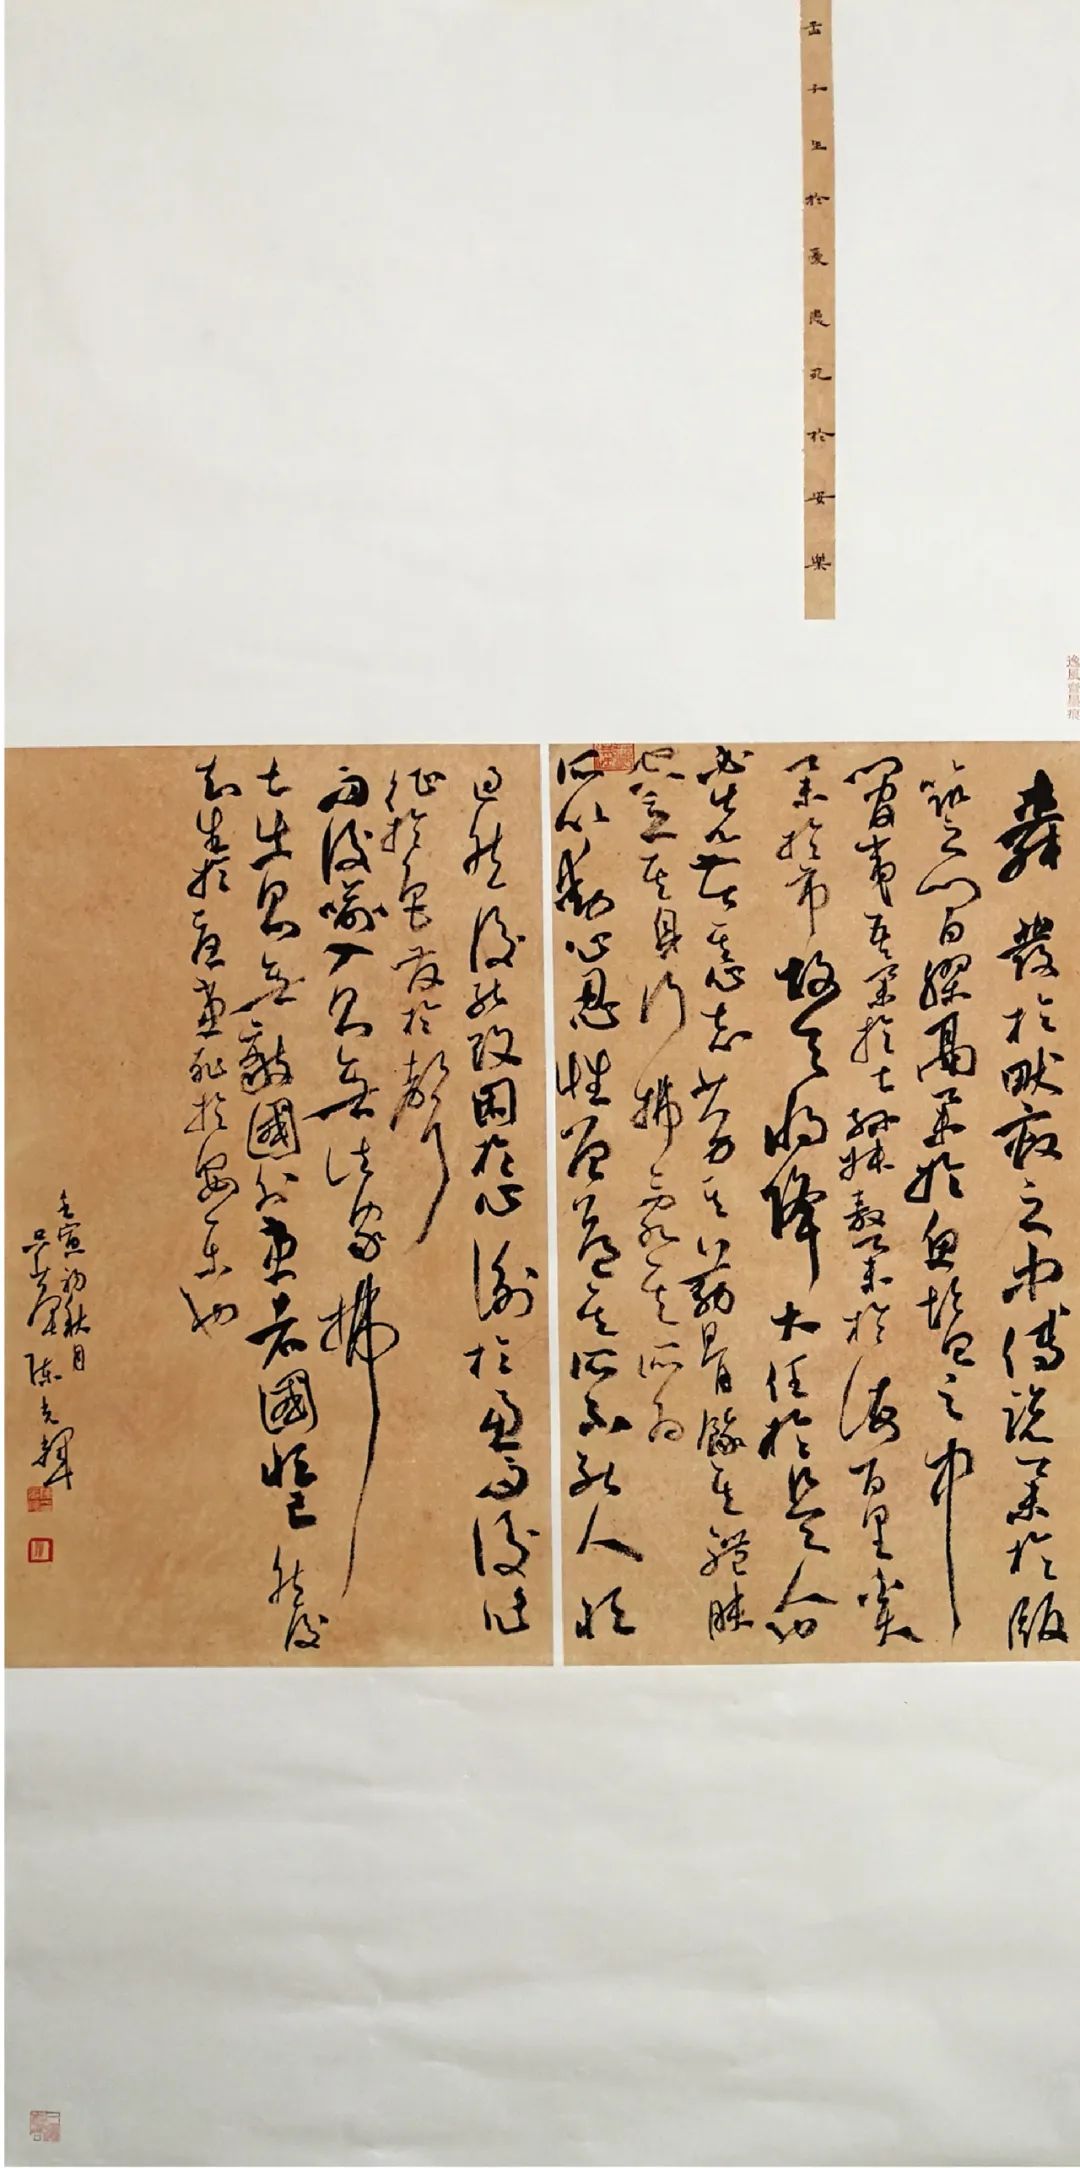 孟子生於憂患死於安樂
逸風齋墨痕
舜發於畎畝之中傅說舉於版
築之間膠鬲舉於魚鹽之中
管夷吾舉於士孫叔敖舉於海百里奚
舉於市故天將降大任於是人也
必先苦其心志勞其筋骨餓其體膚
空乏其身行拂亂其所為
所以動心忍性曾益其所不能人恆
過然後能改困於心衡於慮而後作
征於色發於聲
而後喻入則無法家拂
士出則無敵國外患者國恆亡然後
知生於憂患死於安樂也
壬寅初秋月
陳克輝